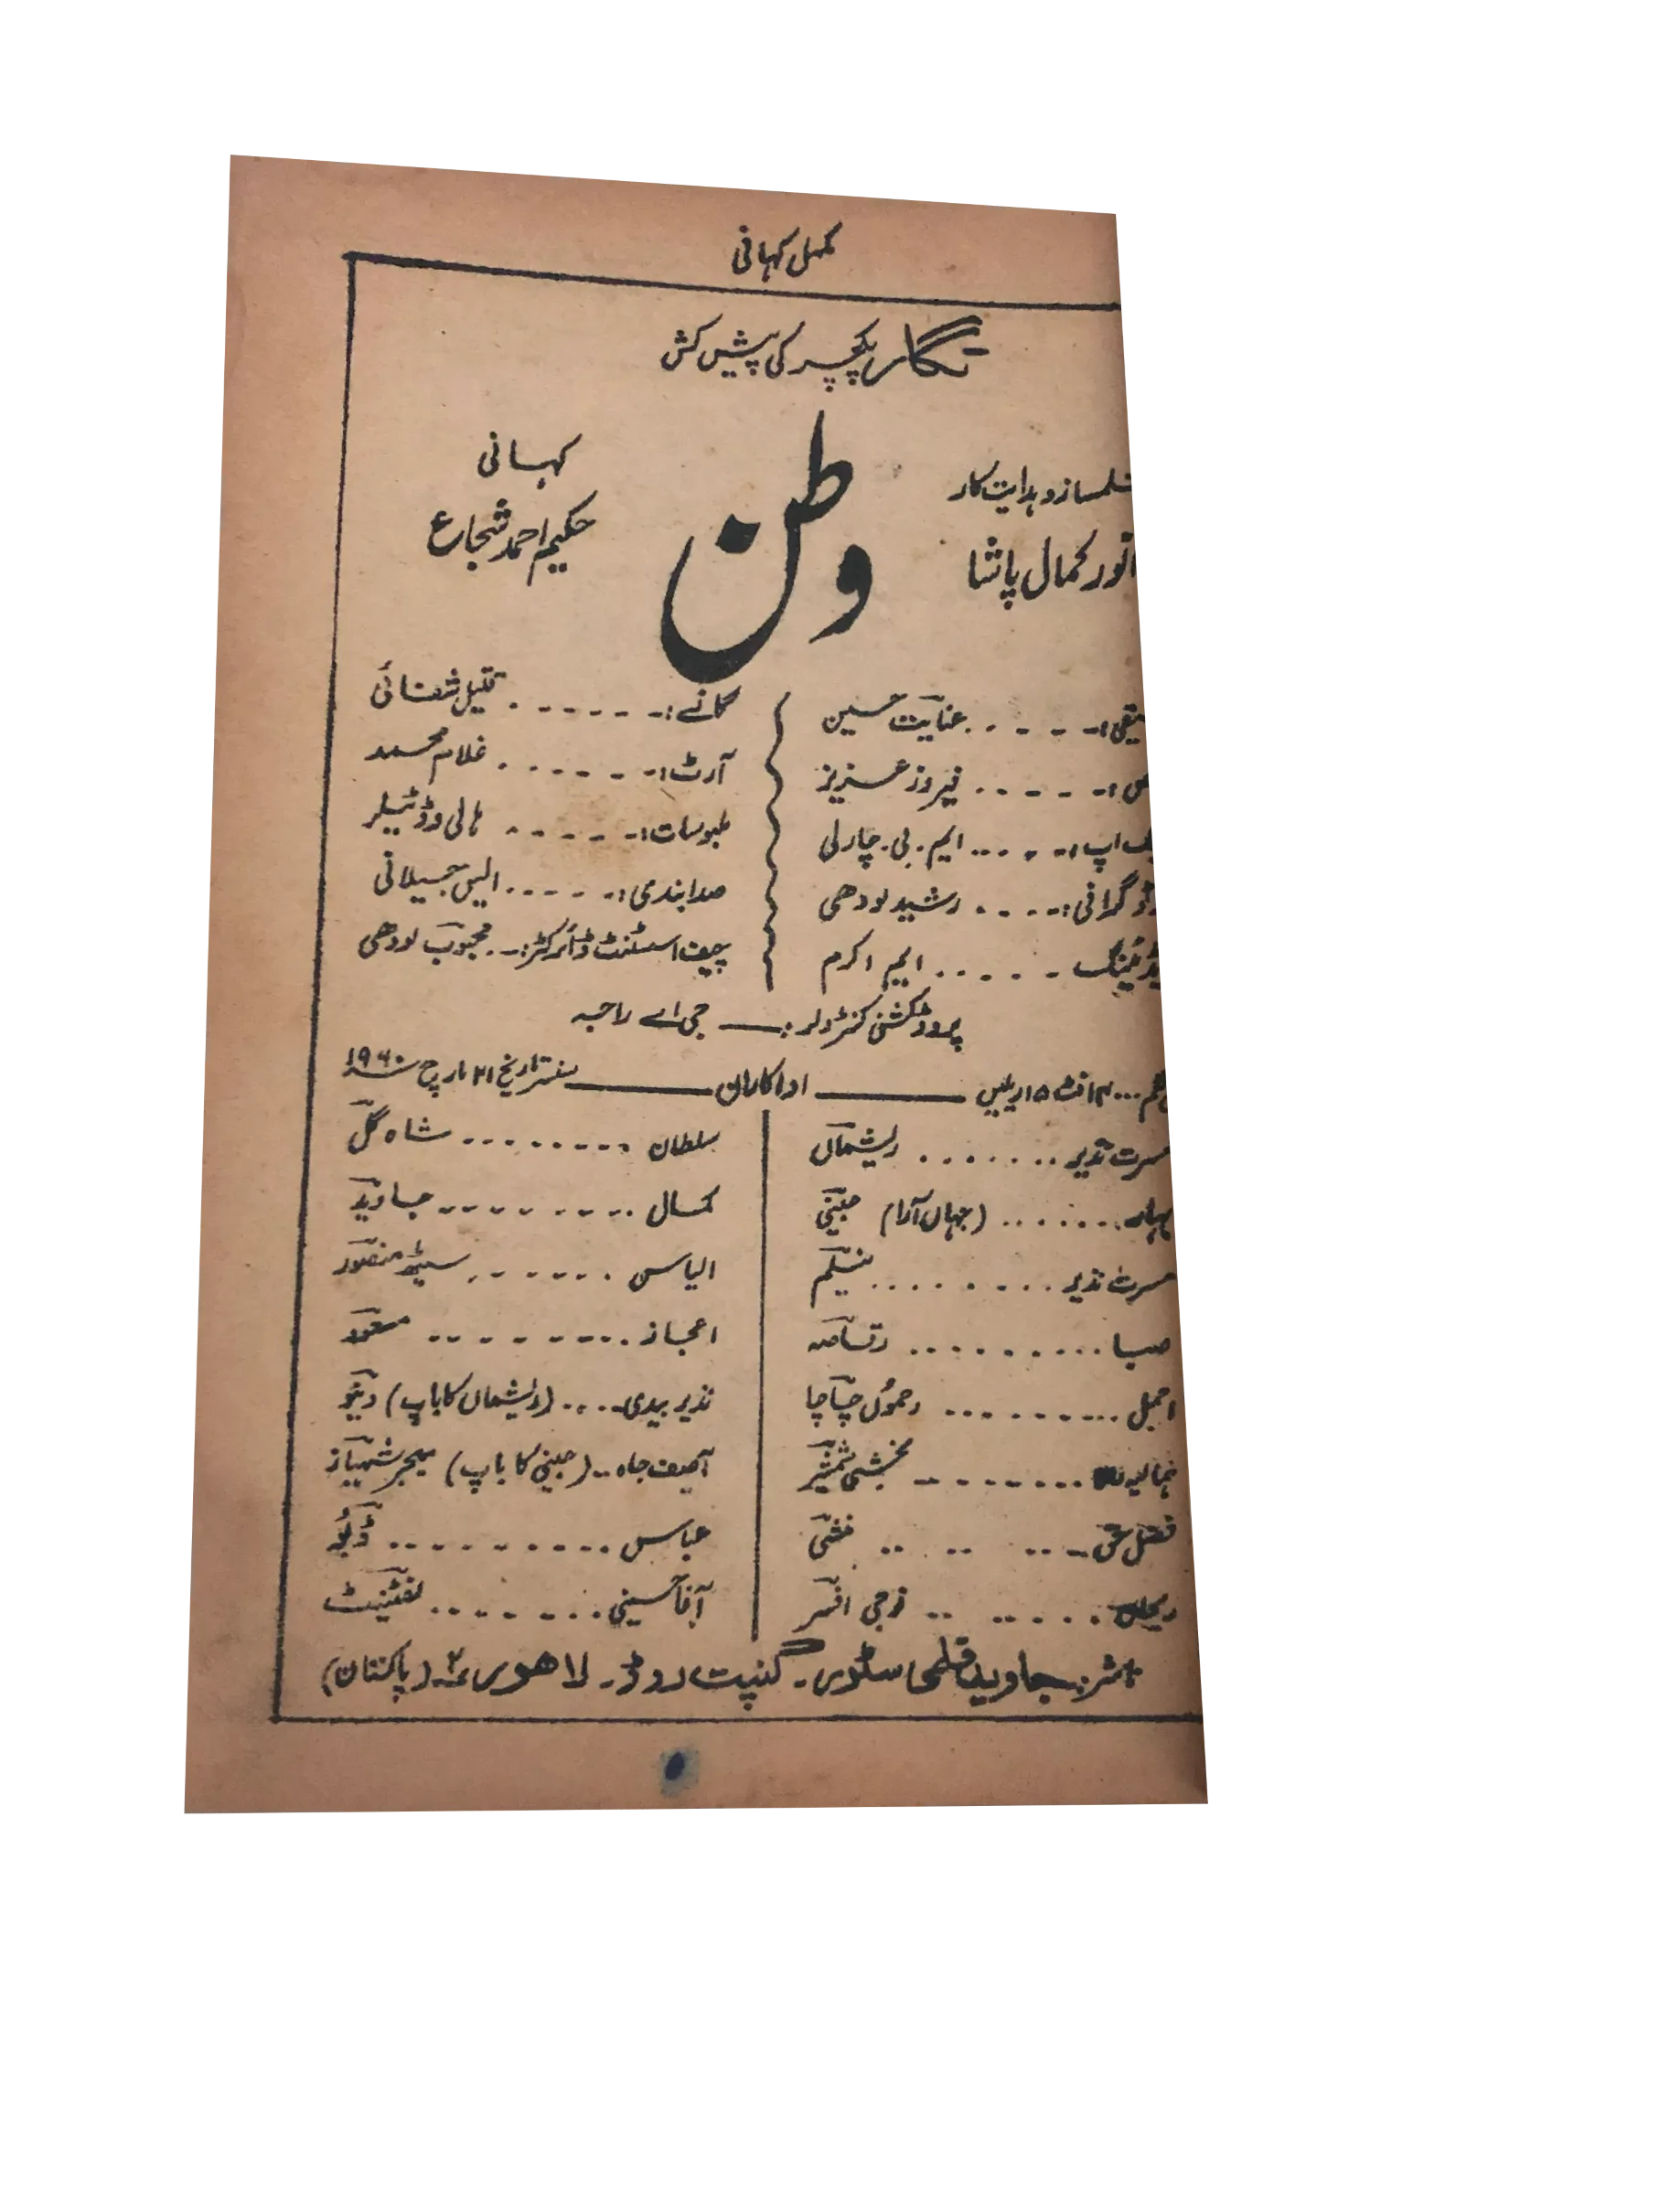 مکمل کہانی
نگار پکچرز کی پیش کش
وطن
فلمساز و ہدایت کار
انور کمال پاشا
کہانی
حکیم احمد شجاع
عنایت حسین
گانے:- قتیل شفائی
فیروز عزیز
آرٹ:- غلام محمد
ایم۔ بی۔ چارلی
ملبوسات:- ہالی وڈ ٹیلر
رشید لودھی
صدابندی:- ایس جیلانی
ایم اکرم
چیف اسسٹنٹ ڈائرکٹر:- محبوب لودھی
پروڈکشن کنٹرولر:- جی اے راجہ
اداکاران
سنسر تاریخ ۲۱ مارچ ۱۹۶۰
مسرت نذیر ....... ریشماں
سلطان ........ شاہ گل
بہار ....... (جہاں آرا) جینی
کمال ........ جاوید
مسرت نذیر ........ نیلم
الیاس ....... سیٹھ منصور
صبا ......... رقاصہ
اعجاز ........ مسعود
اجمل ......... رحموں چاچا
نذیر بیدی .... (ریشماں کا باپ) دینو
ہمالیہ والا ....... بخشی شمشیر
آصف جاہ .. (جینی کا باپ) میجر شہباز
فضل حق .. .. .. منشی
عباس ......... ڈبو
ریحان .... .. .. فوجی افسر
آغا حسینی ........ لفٹینٹ
ناشر:- جاوید فلمی سٹور۔ گنپت روڈ۔ لاھور ۲ (پاکستان)